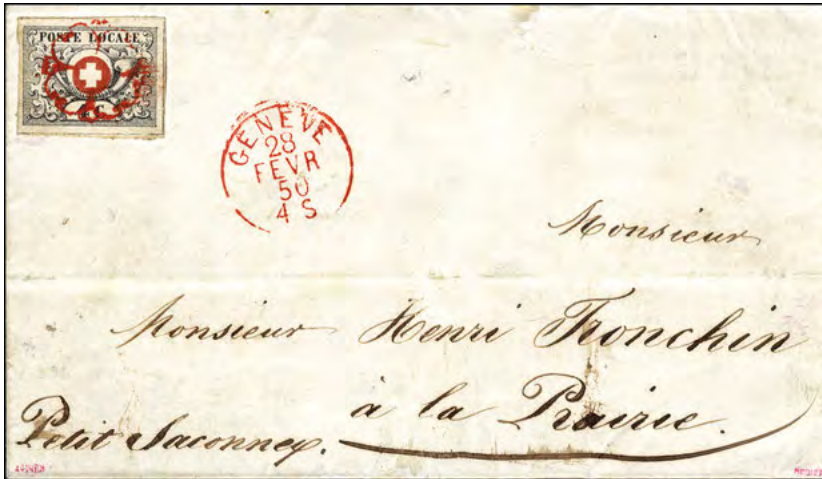 POSTE LOCALE
GENÈVE
28
FEVR
50
4 S
Monsieur
Monsieur Henri Tronchin
à la Prairie.
Petit Saconnex.